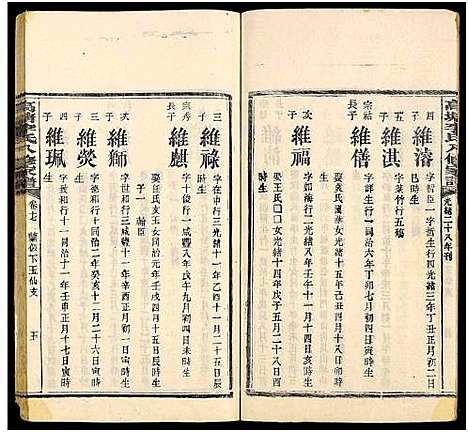 高塘李氏八修家譜
光緒二十八年刊
四子
維濤
字哲臣一字哲生行四光緒三年丁丑正月初二日
時生
五子
維淇
字菉竹行五殤
宗結長子
維僐
字行一同治六年丁卯七月初四日寅時生
娶袁氏國華女光緒十五年己丑四月十八日卯時生
次子
維福
字如海行二光緒八年壬午十一月十四日亥時生
娶王氏□□女光緒十二年丙戌八月二十八日酉
時生
三子
維祿
字在中行三光緒十一年乙酉十一月二十五日辰時生
長子
維麒
字十俊行一咸豐八年戊午九月初四日未時生
娶任氏亥玉女同治元年壬戌四月十五日辰時生
子一 翰臣
次子
維獅
字世和行二咸豐十一年辛酉正月初一日寅時生
三子
維熒
字致和行三同治二年癸亥十二月二十六日寅時生
四子
維珮
字政和行十一同治十一年壬申正月十七日寅時生
高塘李氏八修家譜
卷七
蘭似下玉仙支
五